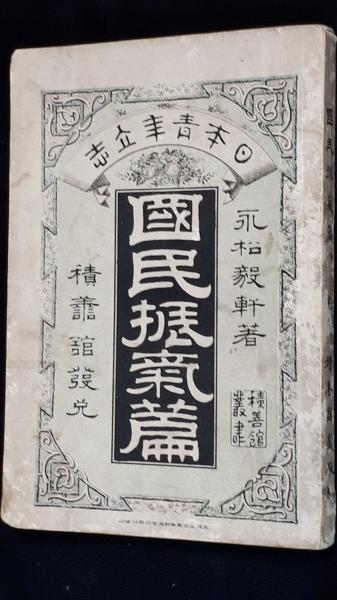 日本青年立志
永松毅軒著
國民振氣篇
積善館發兌
積善館
叢書